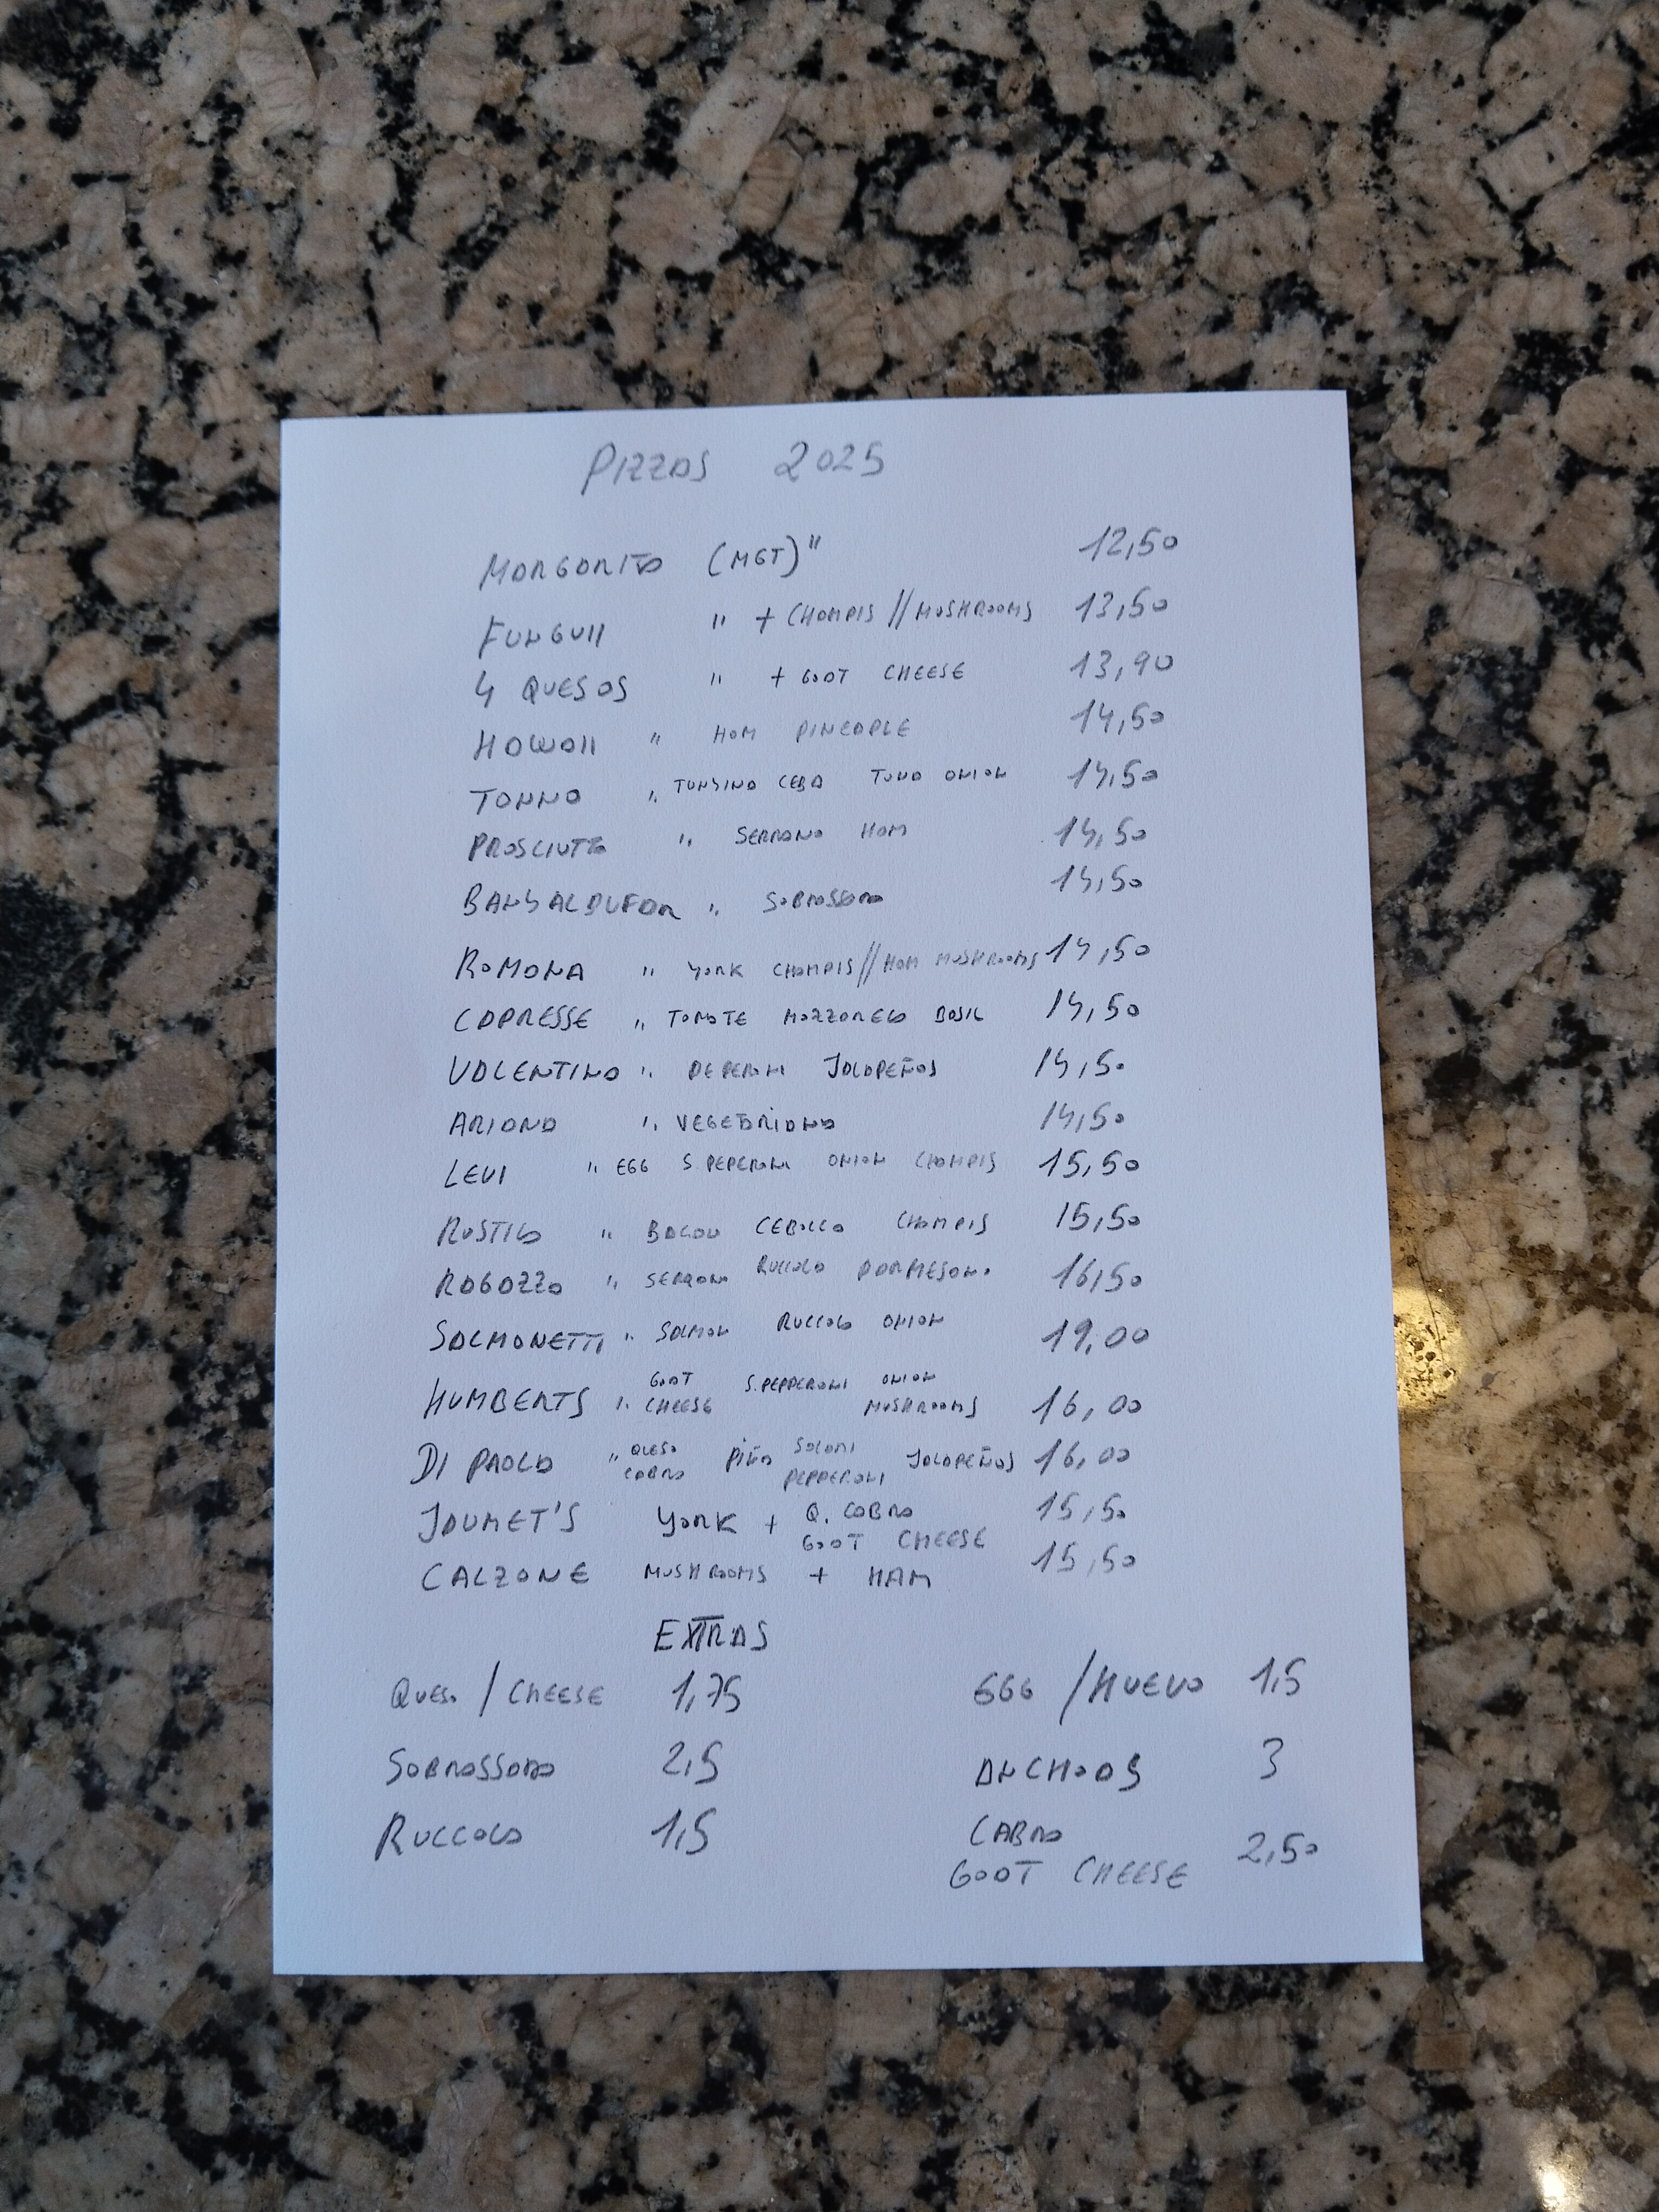 PIZZAS 2025
MARGARITA (MGT)" 12,50
FUNGUII " + CHAMPIS // MUSHROOMS 13,50
4 QUESOS " + GOAT CHEESE 13,90
HAWAII " HAM PINEAPLE 14,50
TONNO " TUNYINA CEBA TUNA ONION 14,50
PROSCIUTTO " SERRANO HAM 14,50
BANYALBUFAR " SOBRASSADA 14,50
ROMANA " YORK CHAMPIS // HAM MUSHROOMS 14,50
CAPRESSE " TOMATE MOZZARELA BASIL 14,50
VALENTINO " PEPERONI JALAPEÑOS 14,50
ARIANA " VEGETARIANA 14,50
LEVI " EGG S.PEPERONI ONION CHAMPIS 15,50
RUSTICA " BACON CEBOLLA CHAMPIS 15,50
RAGAZZA " SERRANO RUCCOLA PARMESANO 16,50
SALMONETTI " SALMON RUCCOLA ONION 19,00
HUMBERTS " GOAT CHEESE S.PEPPERONI ONION MUSHROOMS 16,00
DI PAOLO " QUESO CABRA PIÑA SALAMI PEPPERONI JALAPEÑOS 16,00
JAUMET'S YORK + Q. CABRA GOAT CHEESE 15,50
CALZONE MUSHROOMS + HAM 15,50
EXTRAS
QUESO / CHEESE 1,75 EGG / HUEVO 1,5
SOBRASSADA 2,5 ANCHOAS 3
RUCCOLA 1,5 CABRA
GOAT CHEESE 2,50